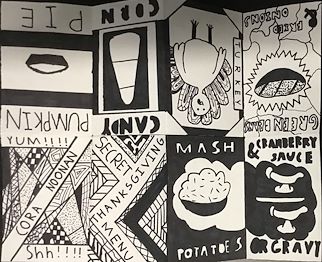 PUMPKIN
PIE
CANDY
CORN
TURKEY
GREEN BEANS
& FRIED
ONIONS
CORA NOONAN
SECRET
THANKSGIVING
MENU
MASH
POTATOES
& CRANBERRY
SAUCE
OR GRAVY